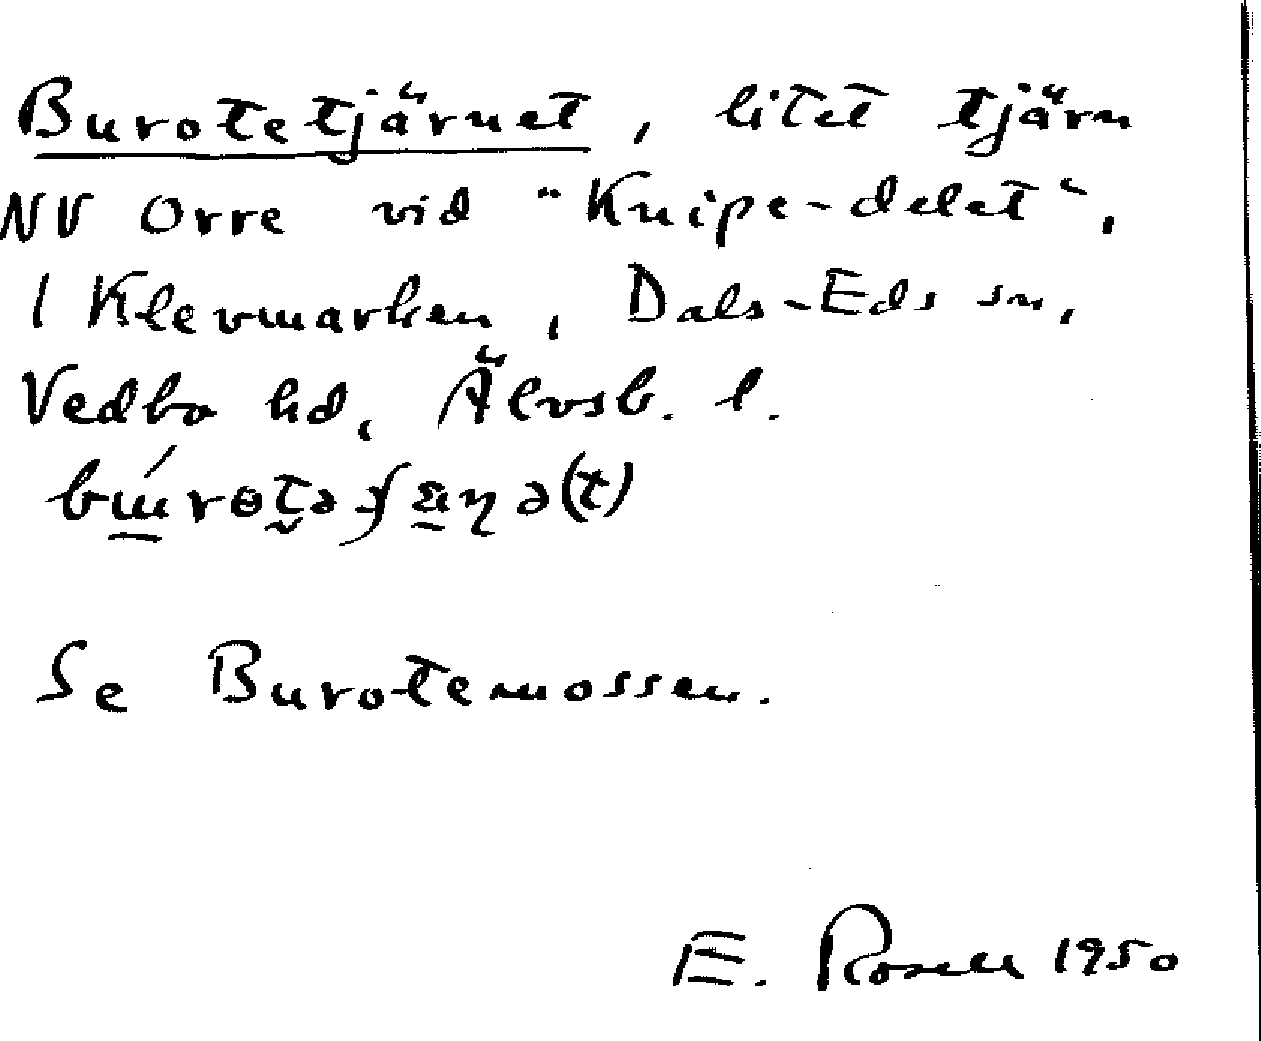 Burotetjärnet, litet tjärn
NV Orre vid "Knipe-delet",
i Klevmarken, Dals-Eds sn,
Vedbo hd, Älvsb. l.
Se Burotemossen.
E. Rosell 1950